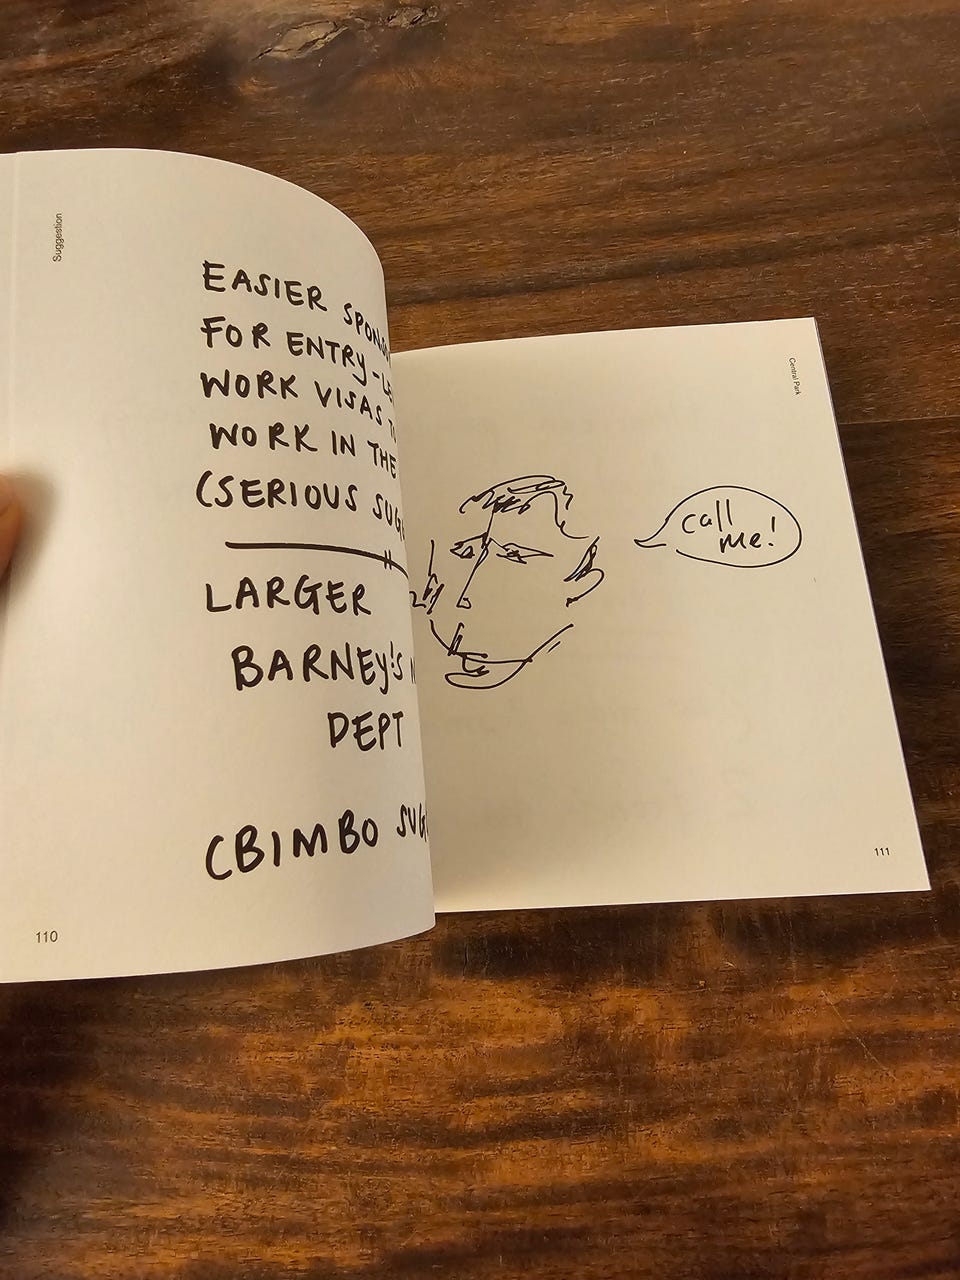 Suggestion
EASIER
FOR ENTRY-
WORK VISAS
WORK IN THE
(SERIOUS
LARGER
BARNEY'S
DEPT
(BIMBO
110
Central Park
call
me!
111